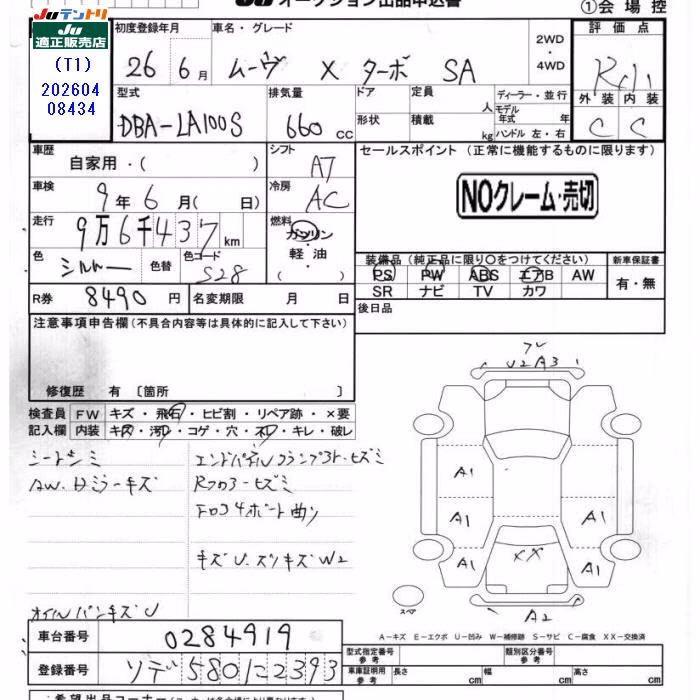 Juテントリ
Ju
適正販売店
(T1)
202604
08434
Ju オークション出品申込書
①会場控
初度登録年月
26 6月
車名・グレード
ムーヴ X ターボ SA
2WD
・
4WD
評価点
外装 内装
C C
型式
DBA-LA100S
排気量
660 cc
ドア
形状
定員 人
積載 kg
ディーラー・並行
モデル
年式 年
ハンドル 左・右
車歴
自家用・( )
シフト
AT
セールスポイント (正常に機能するものに限ります)
NOクレーム・売切
車検
9年6月( 日)
冷房
AC
走行
9万6千437km
燃料
ガソリン
・
軽油
( )
色
シルバー
色替
色コード
S28
装備品(純正品に限り〇をつけてください)
PS PW ABS エアB AW
SR ナビ TV カワ
新車保証書
有・無
R券 8490円
名変期限 月 日
後日品
注意事項申告欄(不具合内容等は具体的に記入して下さい)
修復歴 有 〔箇所 〕
検査員
記入欄
FW キズ・飛石・ヒビ割・リペア跡・×要
内装 キズ・汚レ・コゲ・穴・ネジ・キレ・破レ
シートシミ
AW.ドミラーキズ
エンドパネルクランプ
ヒズミ
キズU.スリキズW2
オイルパンキズU
U2 A3
A1
A1
A1
A1
A1
XX
A2
スペア
A-キズ E-エクボ U-凹み W-補修跡 S-サビ C-腐食 XX-交換済
車台番号 0284919
登録番号
580
2393
型式指定番号
参考
類別区分番号
参考
車庫証明用
参考
長さ cm
幅 cm
高さ cm